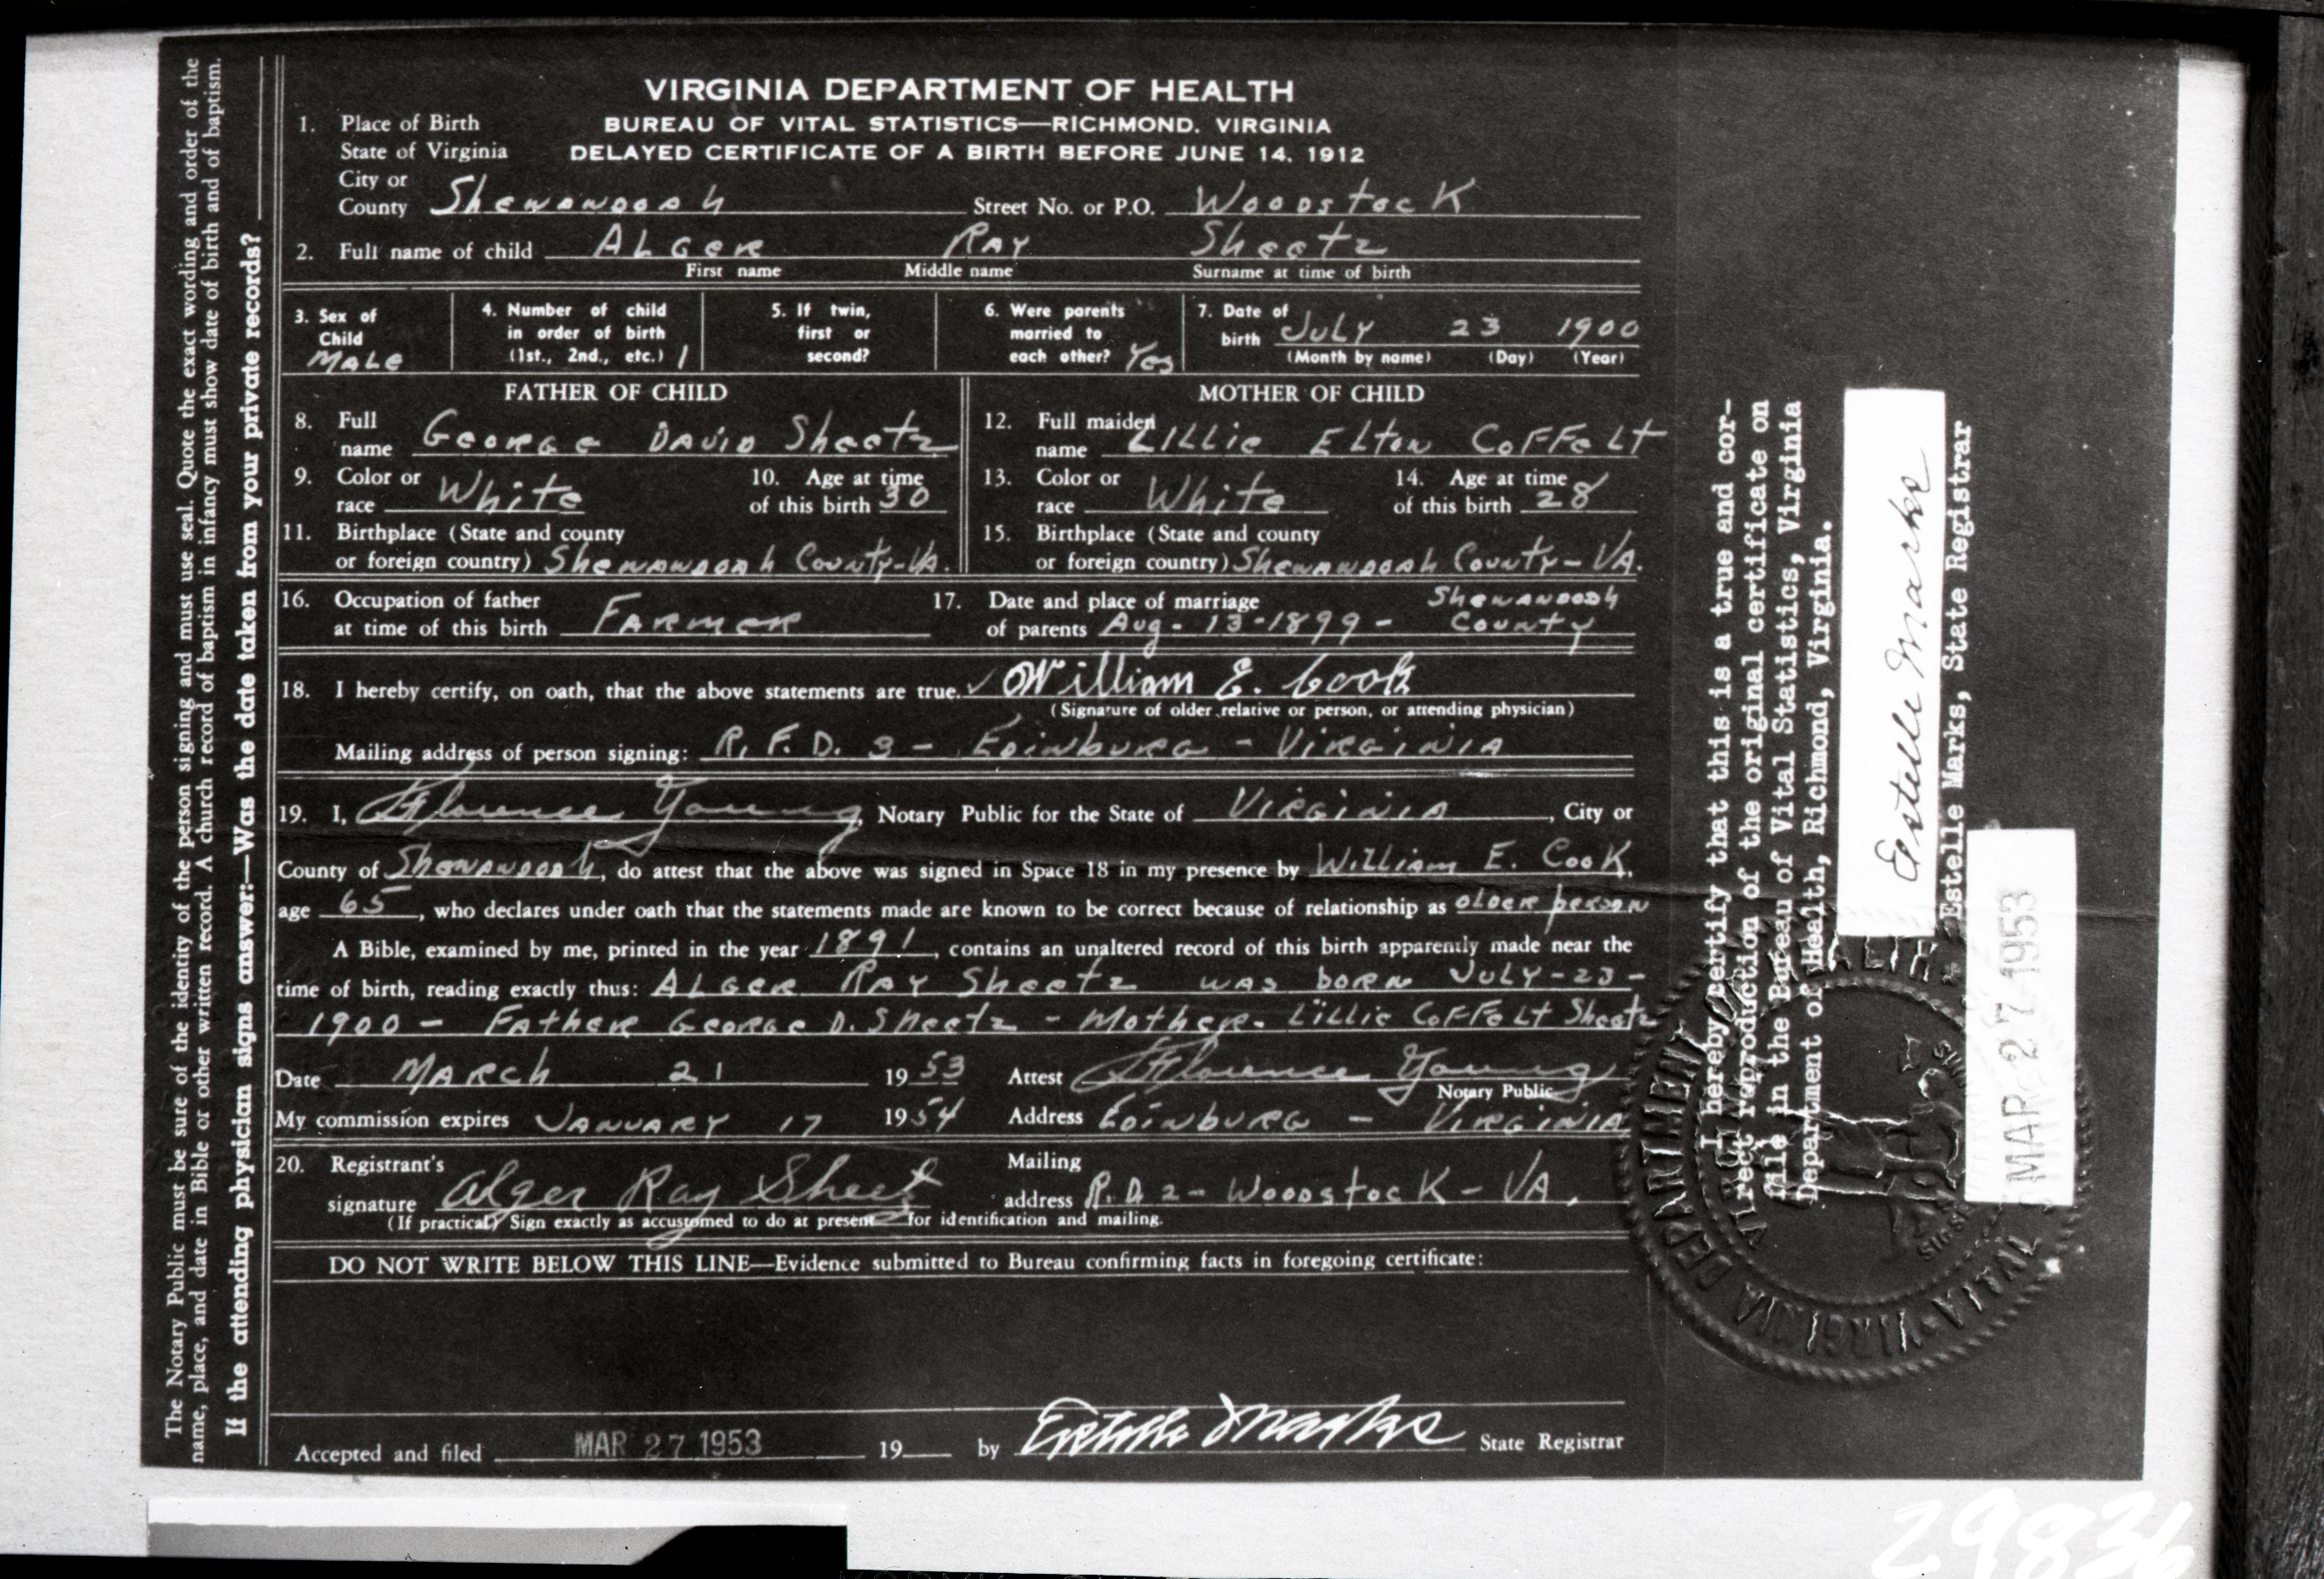 The Notary Public must be sure of the identity of the person signing and must use seal. Quote the exact wording and order of the
name, place, and date in Bible or other written record. A church record of baptism in infancy must show date of birth and of baptism.
If the attending physician signs answer:—Was the date taken from your private records?
VIRGINIA DEPARTMENT OF HEALTH
BUREAU OF VITAL STATISTICS—RICHMOND, VIRGINIA
DELAYED CERTIFICATE OF A BIRTH BEFORE JUNE 14, 1912
1. Place of Birth
State of Virginia
City or
County Shenandoah Street No. or P.O. Woodstock
2. Full name of child Alger Ray Sheetz
First name Middle name Surname at time of birth
3. Sex of Child Male
4. Number of child in order of birth (1st., 2nd., etc.) 1
5. If twin, first or second?
6. Were parents married to each other? Yes
7. Date of birth July 23 1900
(Month by name) (Day) (Year)
FATHER OF CHILD
8. Full name George David Sheetz
9. Color or race White 10. Age at time of this birth 30
11. Birthplace (State and county
or foreign country) Shenandoah County-Va.
MOTHER OF CHILD
12. Full maiden name Lillie Elton Coffelt
13. Color or race White 14. Age at time of this birth 28
15. Birthplace (State and county
or foreign country) Shenandoah County-Va.
16. Occupation of father
at time of this birth Farmer
17. Date and place of marriage
of parents Aug-13-1899- Shenandoah County
18. I hereby certify, on oath, that the above statements are true. William E. Cook
(Signature of older relative or person, or attending physician)
Mailing address of person signing: R.F.D. 3 - Edinburg - Virginia
19. I, Florence Young, Notary Public for the State of Virginia, City or
County of Shenandoah, do attest that the above was signed in Space 18 in my presence by William E. Cook,
age 65, who declares under oath that the statements made are known to be correct because of relationship as older person
A Bible, examined by me, printed in the year 1891, contains an unaltered record of this birth apparently made near the
time of birth, reading exactly thus: Alger Ray Sheetz was born July-23-
1900 - Father George D. Sheetz - Mother- Lillie Coffelt Sheetz
Date March 21 1953 Attest Florence Young
Notary Public
My commission expires January 17 1954 Address Edinburg - Virginia
20. Registrant's
signature Alger Ray Sheetz
Mailing
address R.D 2 - Woodstock - VA.
(If practical) Sign exactly as accustomed to do at present for identification and mailing.
DO NOT WRITE BELOW THIS LINE—Evidence submitted to Bureau confirming facts in foregoing certificate:
Accepted and filed MAR 27 1953 19 by Estelle Marks State Registrar
I hereby certify that this is a true and cor-
rect reproduction of the original certificate on
file in the Bureau of Vital Statistics, Virginia
Department of Health, Richmond, Virginia.
Estelle Marks
Estelle Marks, State Registrar
MAR 27 1953
VIRGINIA DEPARTMENT OF HEALTH
VITAL
29836